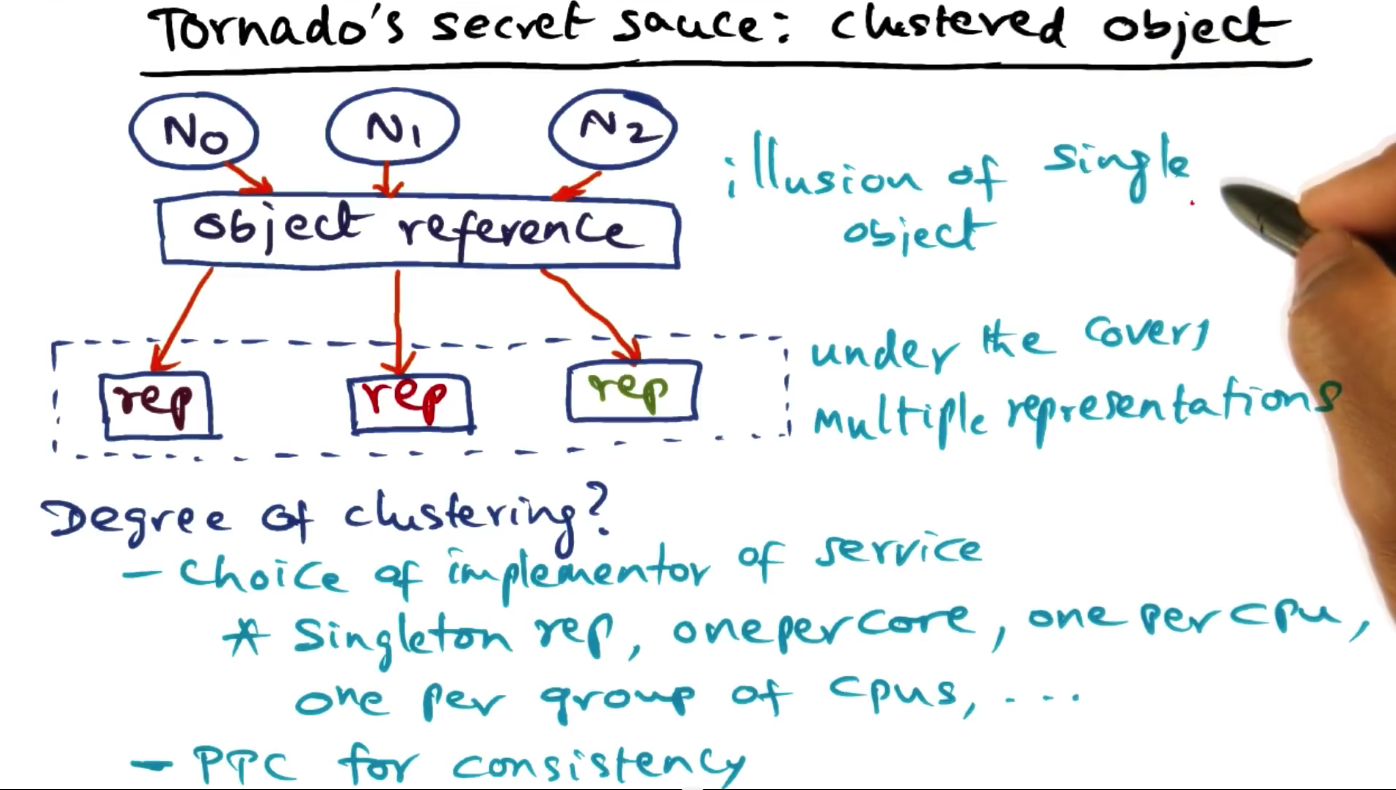 Tornado's secret sauce: clustered object
N0 N1 N2
illusion of single
object reference
object
rep rep rep
under the covers
multiple representations
Degree of clustering?
- Choice of implementor of service
* Singleton rep, one per core, one per cpu,
one per group of cpus, ...
- PPC for consistency